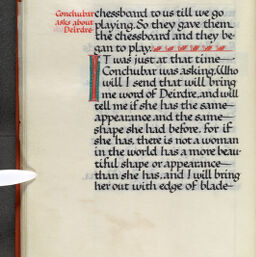 Conchubar
asks about
Deirdre
chessboard to us till we go
playing. So they gave them
the chessboard and they be-
gan to play.
IT was just at that time
Conchubar was asking, Who
will I send that will bring
me word of Deirdre, and will
tell me if she has the same
appearance and the same
shape she had before. For if
she has, there is not a woman
in the world has a more beau-
tiful shape or appearance
than she has, and I will bring
her out with edge of blade